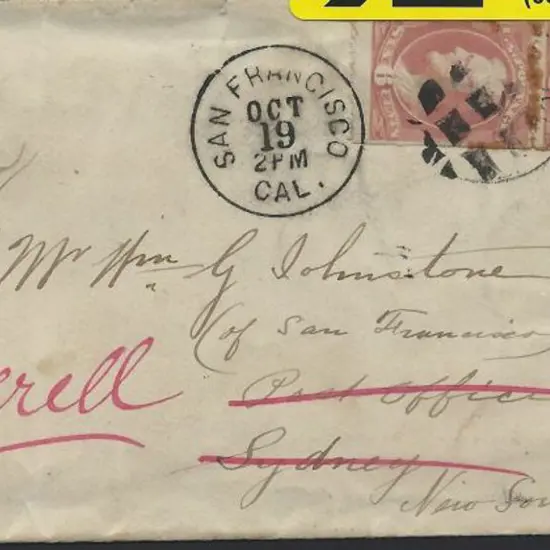 SAN FRANCISCO
OCT
19
2PM
CAL.
Mr Wm G Johnstone
(of San Francisco
Post Office
Sydney
New Sou
erell